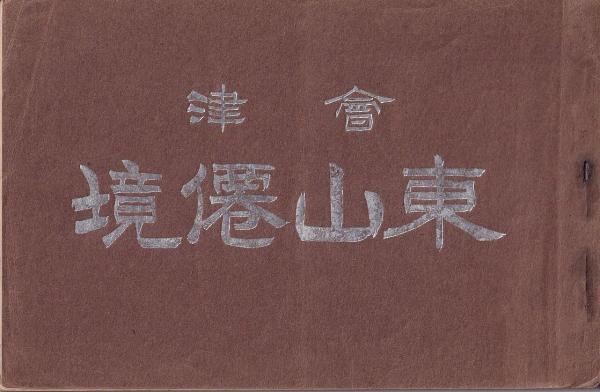 會津
東山僊境